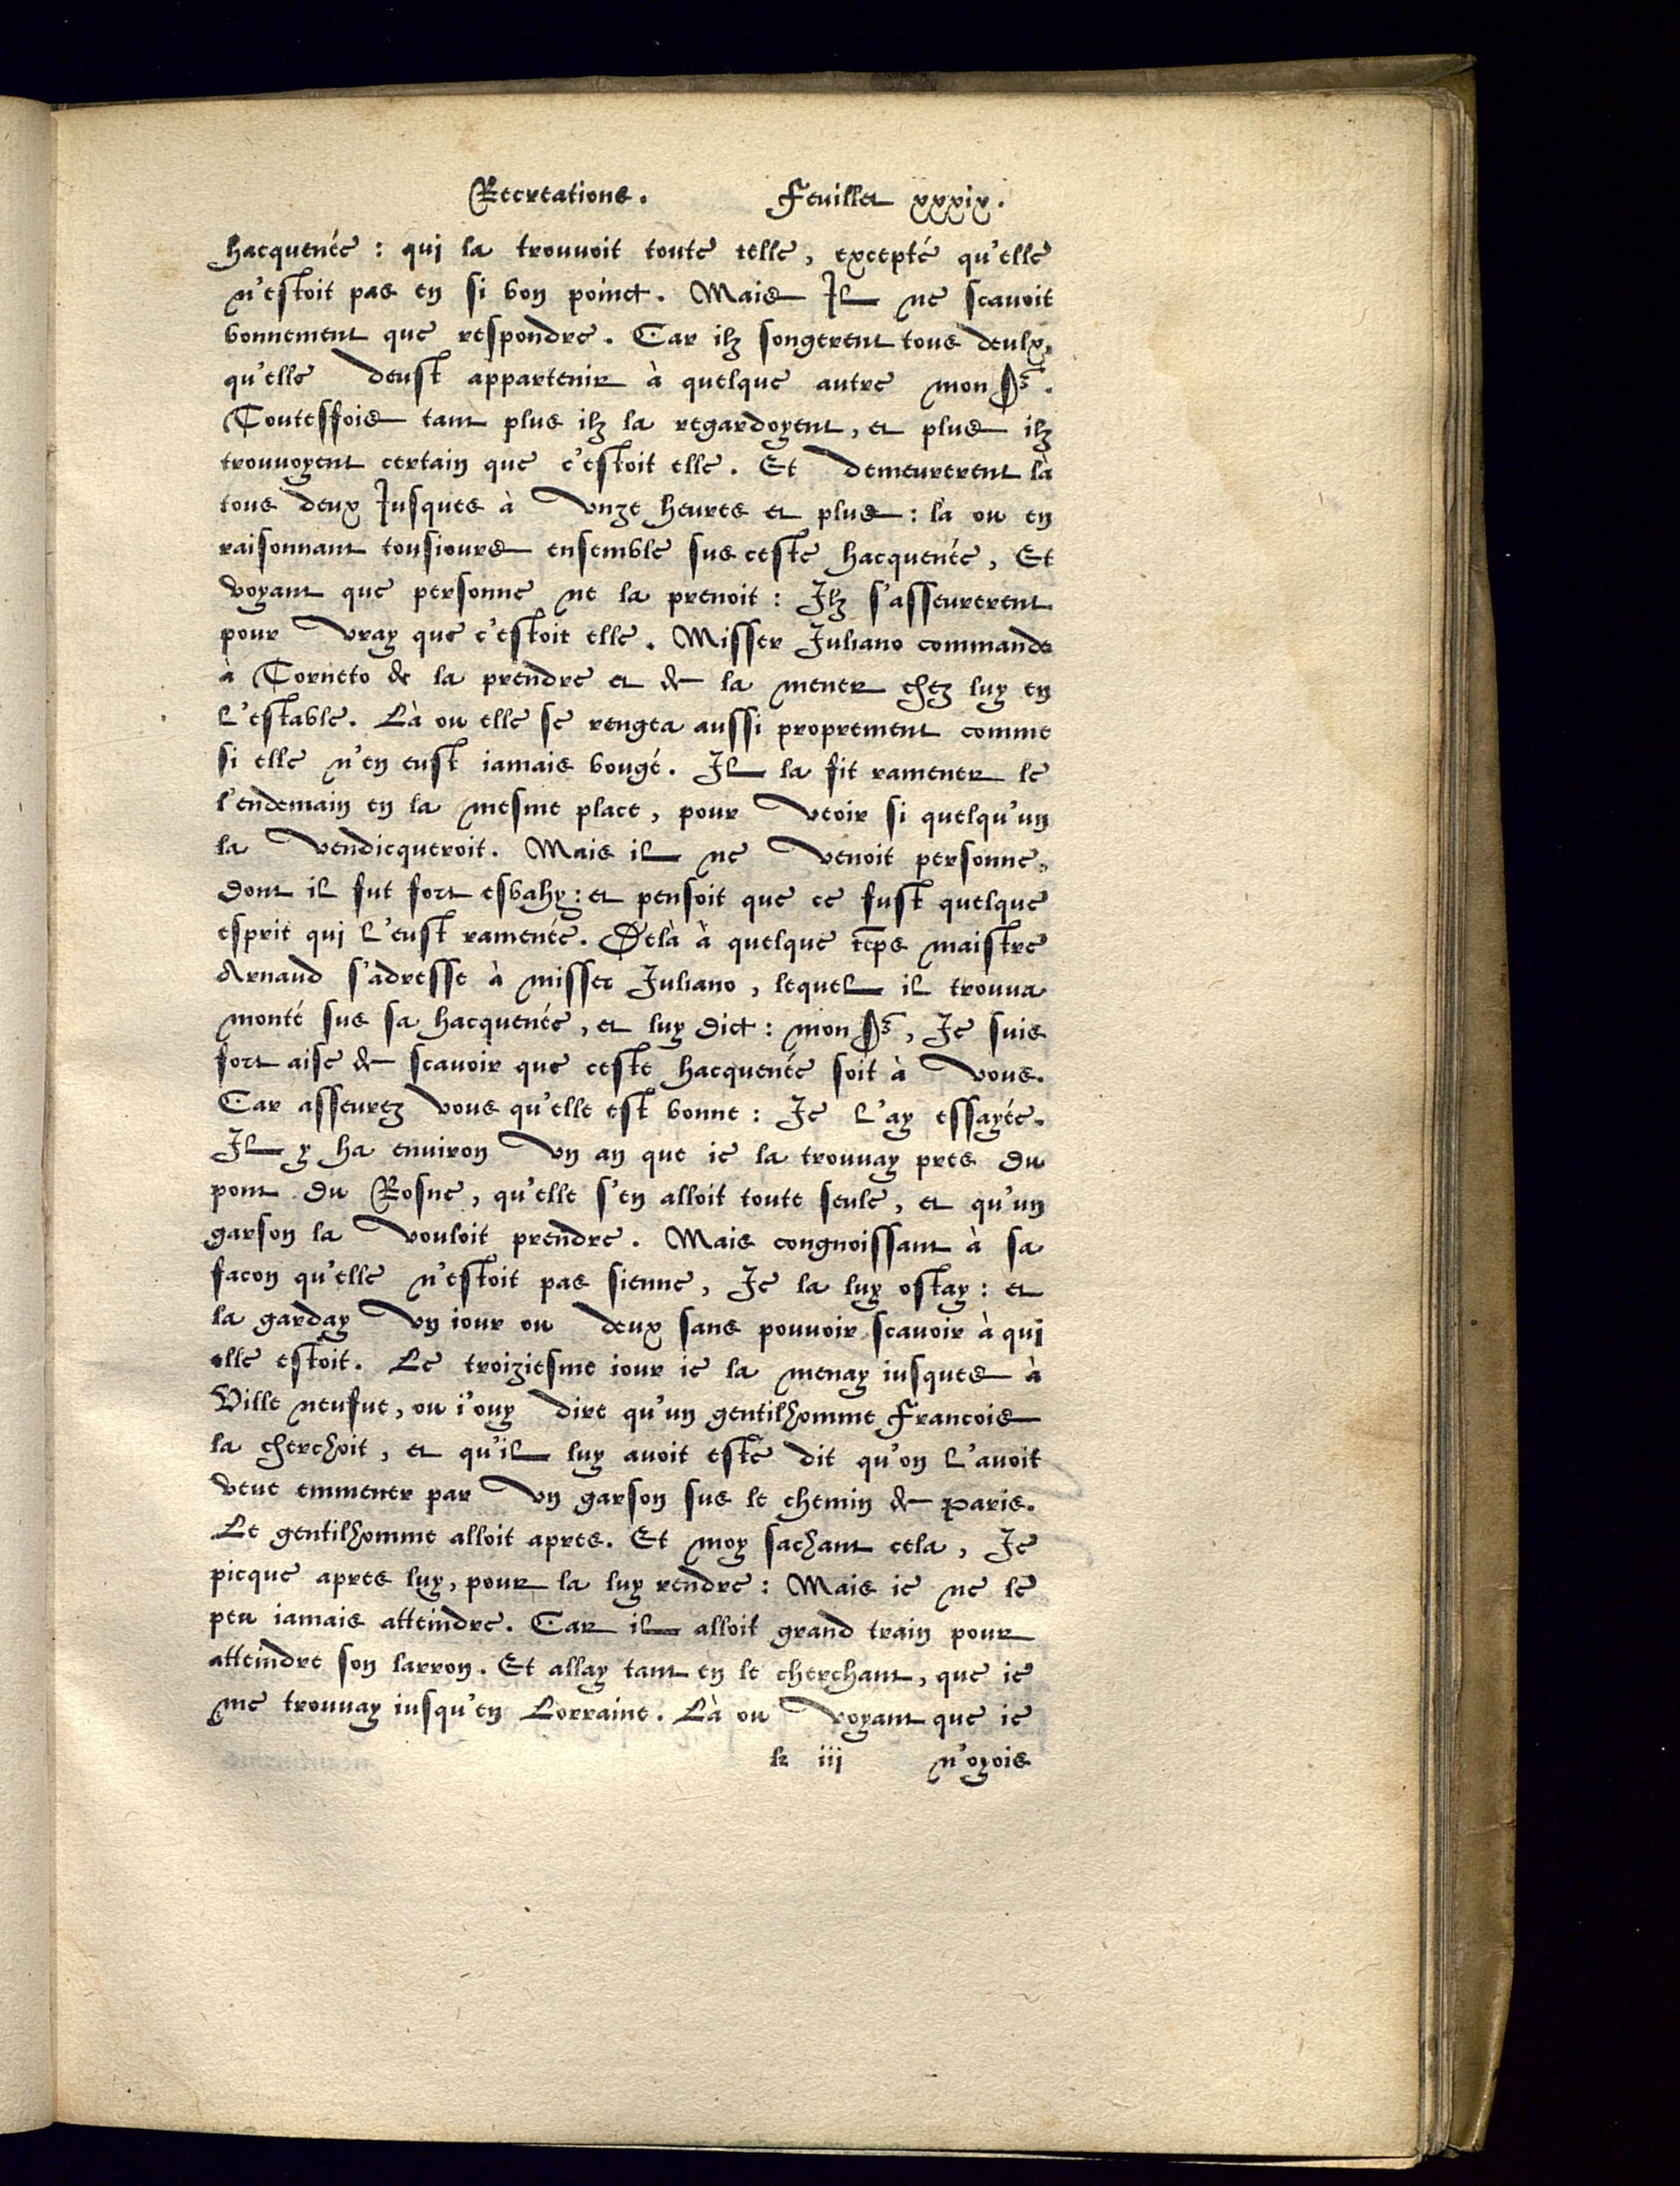 Recreations. Feuillet xxxix.
hacquenée : qui la trouuoit toute telle, excepté qu'elle
n'estoit pas en si bon poinct. Mais Il ne scauoit
bonnement que respondre. Car ilz songerent tous deulx,
qu'elle deust appartenir à quelque autre mon Sr.
Toutesfois tant plus ilz la regardoyent, et plus ilz
trouuoyent certain que c'estoit elle. Et demeurerent là
tous deux Iusques à vnze heures et plus : là ou en
raisonnant tousiours ensemble sus ceste hacquenée, Et
voyant que personne ne la prenoit : Ilz s'asseurerent
pour vray que c'estoit elle. Misser Iuliano commande
à Torneto de la prendre et de la mener chez luy en
l'estable. Là ou elle se rengea aussi proprement comme
si elle n'en eust iamais bougé. Il la fit ramener le
l'endemain en la mesme place, pour veoir si quelqu'un
la vendicqueroit. Mais il ne venoit personne,
dont il fut fort esbahy : et pensoit que ce fust quelque
esprit qui l'eust ramenée. Delà à quelque tẽps maistre
Arnaud s'adresse à misser Iuliano, lequel il trouua
monté sus sa hacquenée, et luy dict : mon Sr, Ie suis
fort aise de scauoir que ceste hacquenée soit à vous.
Car asseurez vous qu'elle est bonne : Ie l'ay essayée.
Il y ha enuiron vn an que ie la trouuay pres du
pont du Rosne, qu'elle s'en alloit toute seule, et qu'un
garson la vouloit prendre. Mais congnoissant à sa
facon qu'elle n'estoit pas sienne, Ie la luy ostay : et
la garday vn iour ou deux sans pouuoir scauoir à qui
elle estoit. Le troiziesme iour ie la menay iusques à
Ville neufue, ou i'ouy dire qu'un gentilhomme Francois
la cherchoit, et qu'il luy auoit esté dit qu'on l'auoit
veue emmener par vn garson sus le chemin de Paris.
Le gentilhomme alloit apres. Et moy sachant cela, Ie
picque apres luy, pour la luy rendre : Mais ie ne le
peu iamais atteindre. Car il alloit grand train pour
atteindre son larron. Et allay tant en le cherchant, que ie
me trouuay iusqu'en Lorraine. Là ou voyant que ie
k iij n'oyois